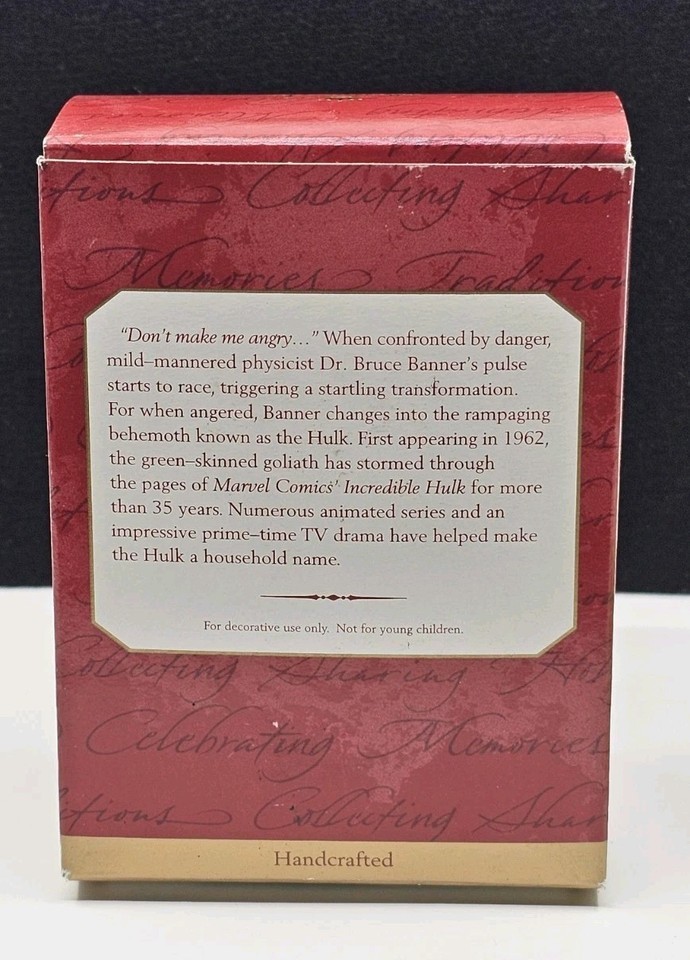 tions Collecting Shar
Memories Tradition
"Don't make me angry..." When confronted by danger,
mild–mannered physicist Dr. Bruce Banner's pulse
starts to race, triggering a startling transformation.
For when angered, Banner changes into the rampaging
behemoth known as the Hulk. First appearing in 1962,
the green–skinned goliath has stormed through
the pages of Marvel Comics' Incredible Hulk for more
than 35 years. Numerous animated series and an
impressive prime–time TV drama have helped make
the Hulk a household name.
For decorative use only. Not for young children.
Collecting Sharing Hol
Celebrating Memories
itions Collecting Shar
Handcrafted